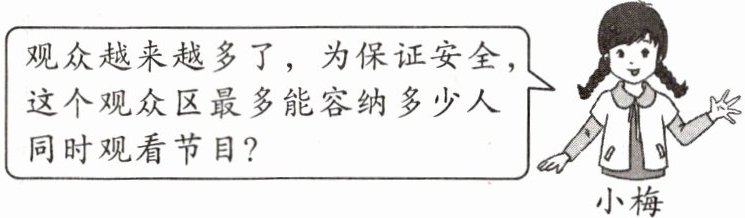 观众越来越多了，为保证安全，
这个观众区最多能容纳多少人
同时观看节目？
小梅